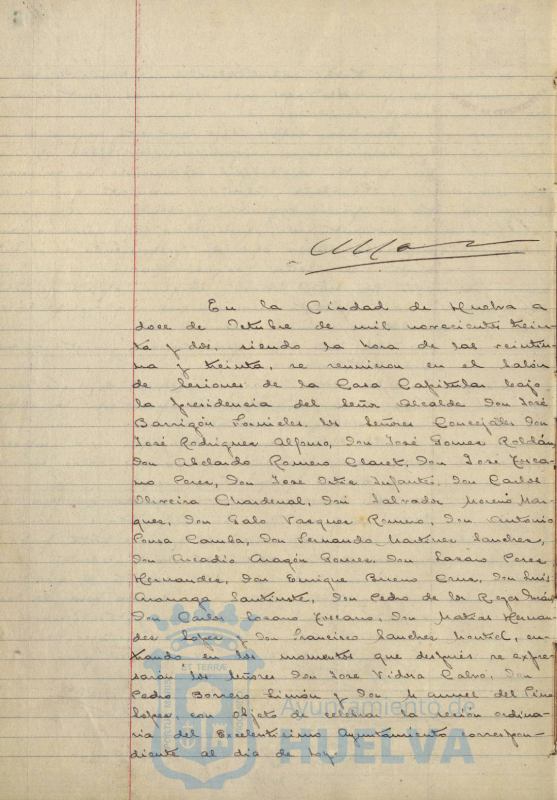 En la Ciudad de Huelva a
doce de Octubre de mil novecientos trein-
ta y dos, siendo la hora de las veintiu-
na y treinta, se reunieron en el Salón
de Sesiones de la Casa Capitular bajo
la presidencia del Señor Alcalde Don José
Barrigón Fornieles, los Señores Concejales Don
José Rodriguez Alfonso, Don José Gomez Roldán,
Don Abelardo Romero Claret, Don José Tosca-
no Perez, Don José Ortiz Infante, Don Carlos
Oliveira Chardenal, Don Salvador Moreno Mar-
quez, Don Galo Vazquez Romero, Don Antonio
Ponsa Camba, Don Fernando Martinez Sanchez,
Don Arcadio Aragón Gomez, Don Lazaro Perez
Hernandez, Don Enrique Bueno Cruz, Don Luis
Don Pedro de los Reyes
Don Carlos Lozano Toscano, Don Matias Hernan-
dez Lopez y Don Francisco Sanchez Montiel, en-
trando en los momentos que después se expre-
sarán los Señores Don José Vidosa Calvo, Don
Pedro Borrero Limón y Don Manuel del Pino
Lopez, con objeto de celebrar la sesión ordina-
ria del Excelentísimo Ayuntamiento correspon-
diente al dia de hoy.
ET TERRÆ
Ayuntamiento de
HUELVA